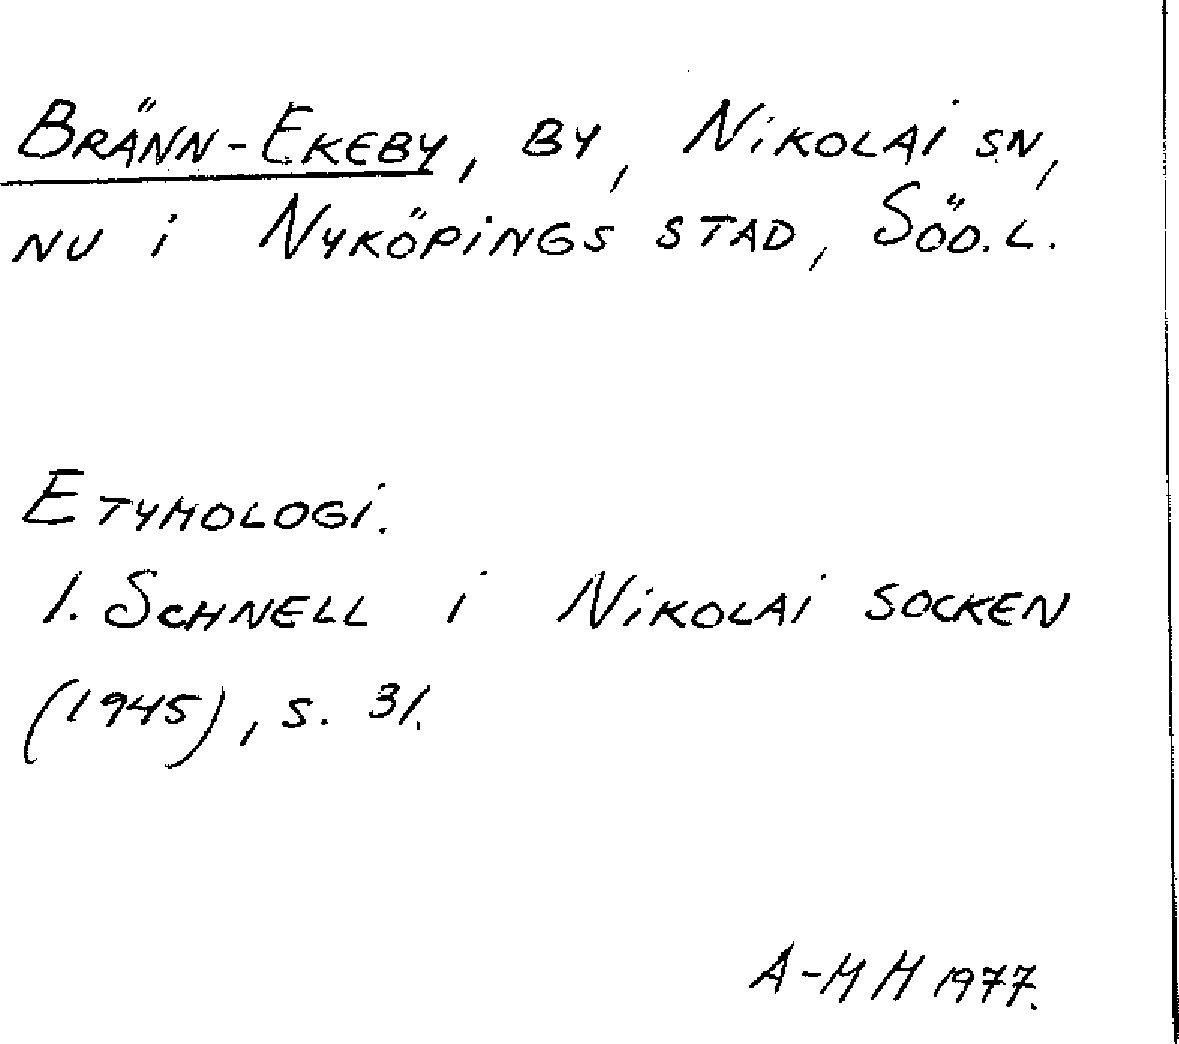 Bränn-Ekeby, by, Nikolai sn,
nu i Nyköpings stad, Söd.l.
Etymologi.
I. Schnell i Nikolai socken
(1945), s. 31.
A-MH 1977.